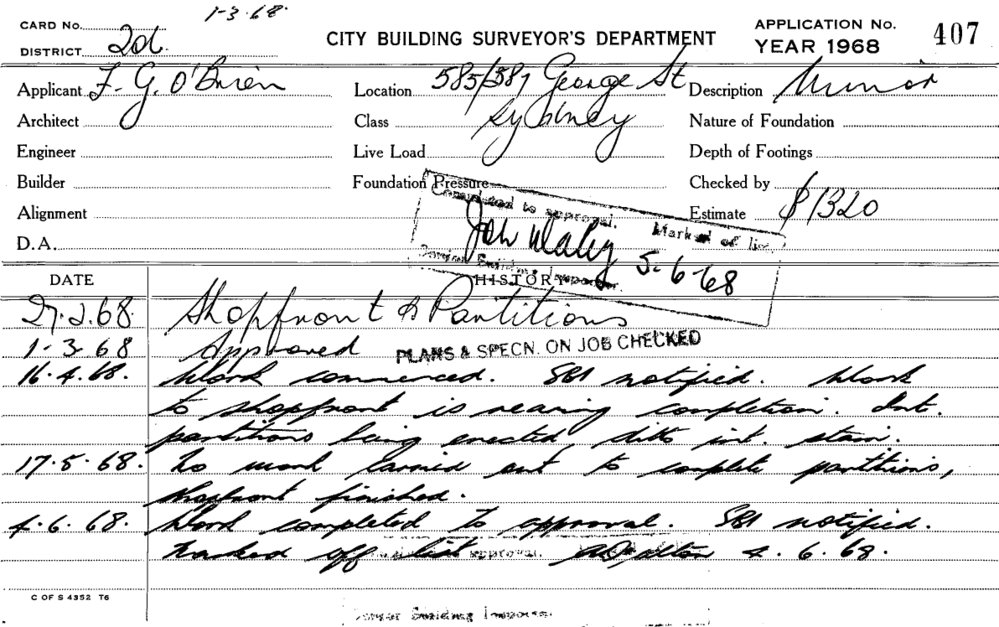 CARD No. 1-3-68.
DISTRICT 2d.
CITY BUILDING SURVEYOR'S DEPARTMENT
APPLICATION No. 407
YEAR 1968
Applicant F. G. O'Brien
Location 585/587 George St
Description Minor
Architect
Class Sydney
Nature of Foundation
Engineer
Live Load
Depth of Footings
Builder
Foundation Pressure
Checked by
Alignment
Estimate $1320
D.A.
Completed to approval. Marked off list.
5-6-68
Senior Building Inspector.
DATE
HISTORY
27.2.68. Shopfront & Partitions
1-3-68 Approved PLANS & SPECN. ON JOB CHECKED
16.4.68. Work commenced. SBI notified. Work
to shopfront is nearing completion. Int.
partitions being erected, ditto int. stair.
17.5.68. No work carried out to complete partitions,
shopfront finished.
4.6.68. Work completed to approval. SBI notified.
Marked off list approval. 4.6.68.
C OF S 4352 T6
Senior Building Inspector.